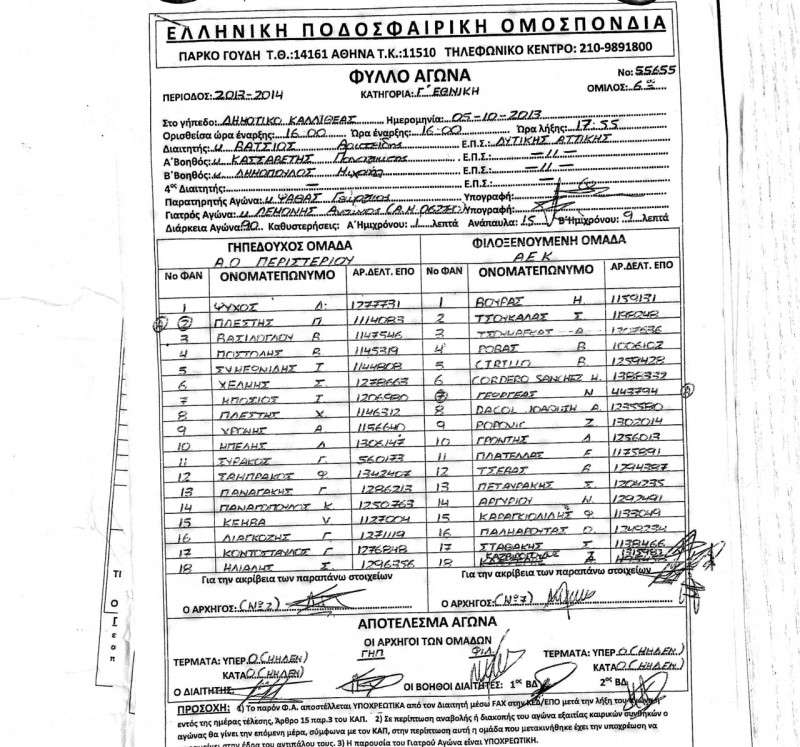 ΕΛΛΗΝΙΚΗ ΠΟΔΟΣΦΑΙΡΙΚΗ ΟΜΟΣΠΟΝΔΙΑ
ΠΑΡΚΟ ΓΟΥΔΗ Τ.Θ.:14161 ΑΘΗΝΑ Τ.Κ.:11510 ΤΗΛΕΦΩΝΙΚΟ ΚΕΝΤΡΟ: 210-9891800
ΦΥΛΛΟ ΑΓΩΝΑ No: 55655
ΠΕΡΙΟΔΟΣ: 2013-2014 ΚΑΤΗΓΟΡΙΑ: Γ' ΕΘΝΙΚΗ ΟΜΙΛΟΣ: 6ος
Στο γήπεδο: ΔΗΜΟΤΙΚΟ ΚΑΛΛΙΘΕΑΣ Ημερομηνία: 05-10-2013
Ορισθείσα ώρα έναρξης: 16.00 Ώρα έναρξης: 16.00 Ώρα λήξης: 17:55
Διαιτητής: κ. ΒΑΤΣΙΟΣ Αριστείδης Ε.Π.Σ.: ΔΥΤΙΚΗΣ ΑΤΤΙΚΗΣ
Α΄Βοηθός: κ. ΚΑΣΣΑΒΕΤΗΣ Ε.Π.Σ.: -11-
Β΄Βοηθός: κ. ΔΗΜΟΠΟΥΛΟΣ Ε.Π.Σ.: -11-
4ος Διαιτητής: - Ε.Π.Σ.: -
Παρατηρητής Αγώνα: κ. ΨΑΘΑΣ Γεώργιος Υπογραφή:
Γιατρός Αγώνα: κ. ΛΕΜΟΝΗΣ Υπογραφή:
Διάρκεια Αγώνα: 90 Καθυστερήσεις: Α΄Ημιχρόνου: 1 λεπτά Ανάπαυλα: 15 Β΄Ημιχρόνου: 9 λεπτά
ΓΗΠΕΔΟΥΧΟΣ ΟΜΑΔΑ ΦΙΛΟΞΕΝΟΥΜΕΝΗ ΟΜΑΔΑ
Α.Ο ΠΕΡΙΣΤΕΡΙΟΥ Α.Ε.Κ
Νο ΦΑΝ ΟΝΟΜΑΤΕΠΩΝΥΜΟ ΑΡ.ΔΕΛΤ. ΕΠΟ Νο ΦΑΝ ΟΝΟΜΑΤΕΠΩΝΥΜΟ ΑΡ.ΔΕΛΤ. ΕΠΟ
1 ΨΥΧΟΣ Δ. 1277731 1 ΒΟΥΡΑΣ Η. 1159131
2 ΠΛΕΣΤΗΣ Π 1114083 2 ΤΣΟΥΚΑΛΑΣ Σ
3 ΒΑΣΙΛΟΓΛΟΥ Β 1147546 3
4 ΠΟΣΤΟΛΗΣ Β 1145319 4 ΡΟΒΑΣ Β 1006102
5 ΣΥΜΕΩΝΙΔΗΣ Ι 1144808 5 CIRILLO B 1259428
6 ΧΕΛΜΗΣ Σ 1278663 6 CORDERO SANCHEZ M. 1388332
7 ΜΠΟΣΙΟΣ Ι 1206980 7 ΓΕΩΡΓΕΑΣ Ν 443794
8 ΠΛΕΣΤΗΣ Χ 1146312 8 DACOL JOAQUIM A.
9 ΧΡΟΝΗΣ Α 1156640 9 POPOVIC Z 1302014
10 ΜΠΕΛΗΣ Λ 1306147 10 ΓΡΟΝΤΗΣ Δ 1256013
11 ΣΥΡΑΚΟΣ Γ 560173 11 ΠΛΑΤΕΛΛΑΣ Ε 1175891
12 ΣΑΜΠΡΑΚΟΣ Φ 1342407 12 ΤΣΕΒΑΣ Β 1294387
13 ΠΑΝΑΓΑΚΗΣ Γ 1286213 13 ΠΕΤΑΥΡΑΚΗΣ Σ 1204235
14 ΠΑΝΑΓΟΠΟΥΛΟΣ Κ 1250763 14 ΑΡΓΥΡΙΟΥ Ν. 1292491
15 ΚΕΗΒΑ V 1127004 15 ΚΑΡΑΓΚΙΟΛΙΔΗΣ Φ 1133049
16 ΛΙΑΓΚΟΖΗΣ Γ 1271119 16 ΠΑΛΗΑΡΟΥΤΑΣ Ο.
17 ΚΟΝΤΟΣΤΑΥΛΟΣ Γ 1276848 17 ΣΤΑΘΑΚΗΣ Σ 1138466
18 ΗΛΙΑΔΗΣ Σ. 1296356 18
Για την ακρίβεια των παραπάνω στοιχείων Για την ακρίβεια των παραπάνω στοιχείων
Ο ΑΡΧΗΓΟΣ: (Νο 2) Ο ΑΡΧΗΓΟΣ: (Νο 7)
ΑΠΟΤΕΛΕΣΜΑ ΑΓΩΝΑ
ΟΙ ΑΡΧΗΓΟΙ ΤΩΝ ΟΜΑΔΩΝ
ΓΗΠ ΦΙΛ.
ΤΕΡΜΑΤΑ: ΥΠΕΡ: 0 (ΜΗΔΕΝ) ΤΕΡΜΑΤΑ: ΥΠΕΡ: 0 (ΜΗΔΕΝ)
ΚΑΤΑ: 0 (ΜΗΔΕΝ) ΚΑΤΑ: 0 (ΜΗΔΕΝ)
Ο ΔΙΑΙΤΗΤΗΣ: ΟΙ ΒΟΗΘΟΙ ΔΙΑΙΤΗΤΕΣ: 1ος ΒΔ 2ος ΒΔ
ΠΡΟΣΟΧΗ: 1) Το παρόν Φ.Α. αποστέλλεται ΥΠΟΧΡΕΩΤΙΚΑ από τον Διαιτητή μέσω FAX στην ΚΕΔ/ΕΠΟ μετά την λήξη του αγώνα
εντός της ημέρας τέλεσης, Άρθρο 15 παρ.3 του ΚΑΠ. 2) Σε περίπτωση αναβολής ή διακοπής του αγώνα εξαιτίας καιρικών συνθηκών ο
αγώνας θα γίνει την επόμενη μέρα, σύμφωνα με τον ΚΑΠ, στην περίπτωση αυτή η ομάδα που μετακινήθηκε έχει την υποχρέωση να
στην έδρα του αντιπάλου τους. 3) Η παρουσία του Γιατρού Αγώνα είναι ΥΠΟΧΡΕΩΤΙΚΗ.